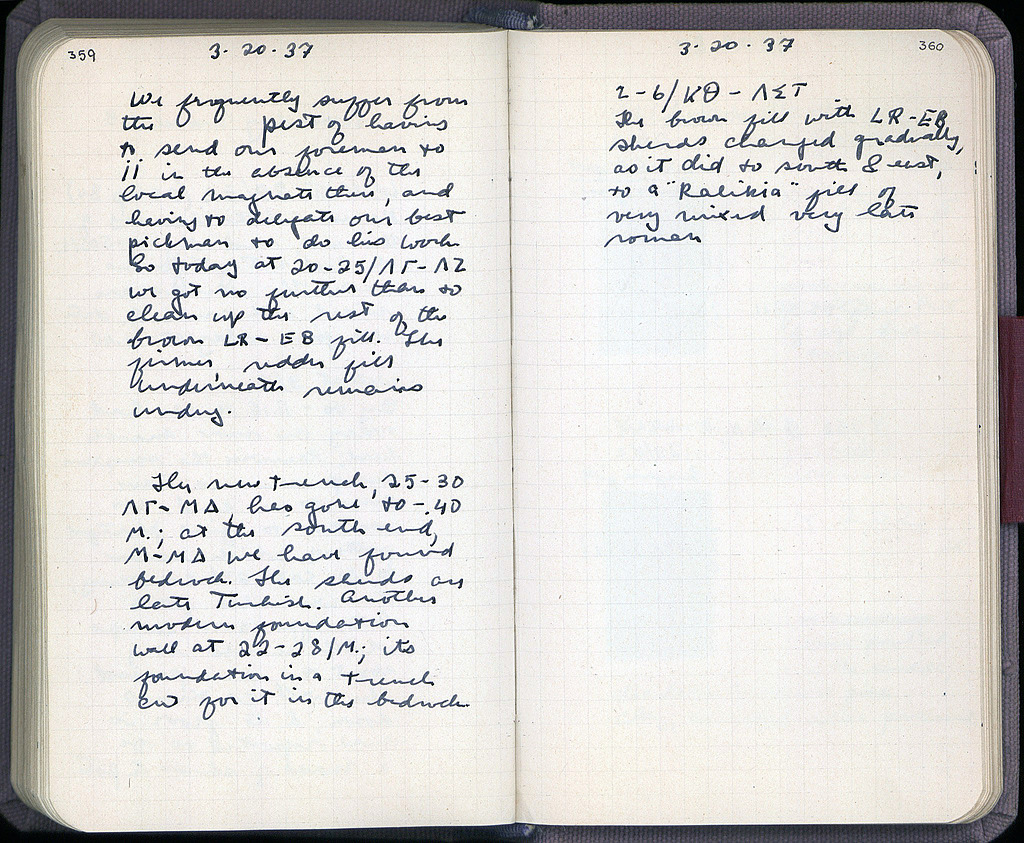 359
3-20-37
We frequently suffer from
the pest of having
to send our foreman to
II in the absence of the
local magnate there, and
having to delegate our best
pickman to do his work.
So today at 20-25/ΛΓ-ΛΖ
we got no further than to
clean up the rest of the
brown LR-EB fill. The
firmer, redder fill
underneath remains
undug.
The new trench, 25-30
ΛΓ-ΜΔ, has gone to -.40
M.; at the south end,
Μ-ΜΔ we have found
bedrock. The sherds are
late Turkish. Another
modern foundation
wall at 22-28/Μ; its
foundation in a trench
cut for it in the bedrock.
360
3-20-37
2-6/ΚΘ-ΛΣΤ
The brown fill with LR-EB
sherds changed gradually,
as it did to south & east,
to a "Ralikia" fill of
very mixed very late
roman